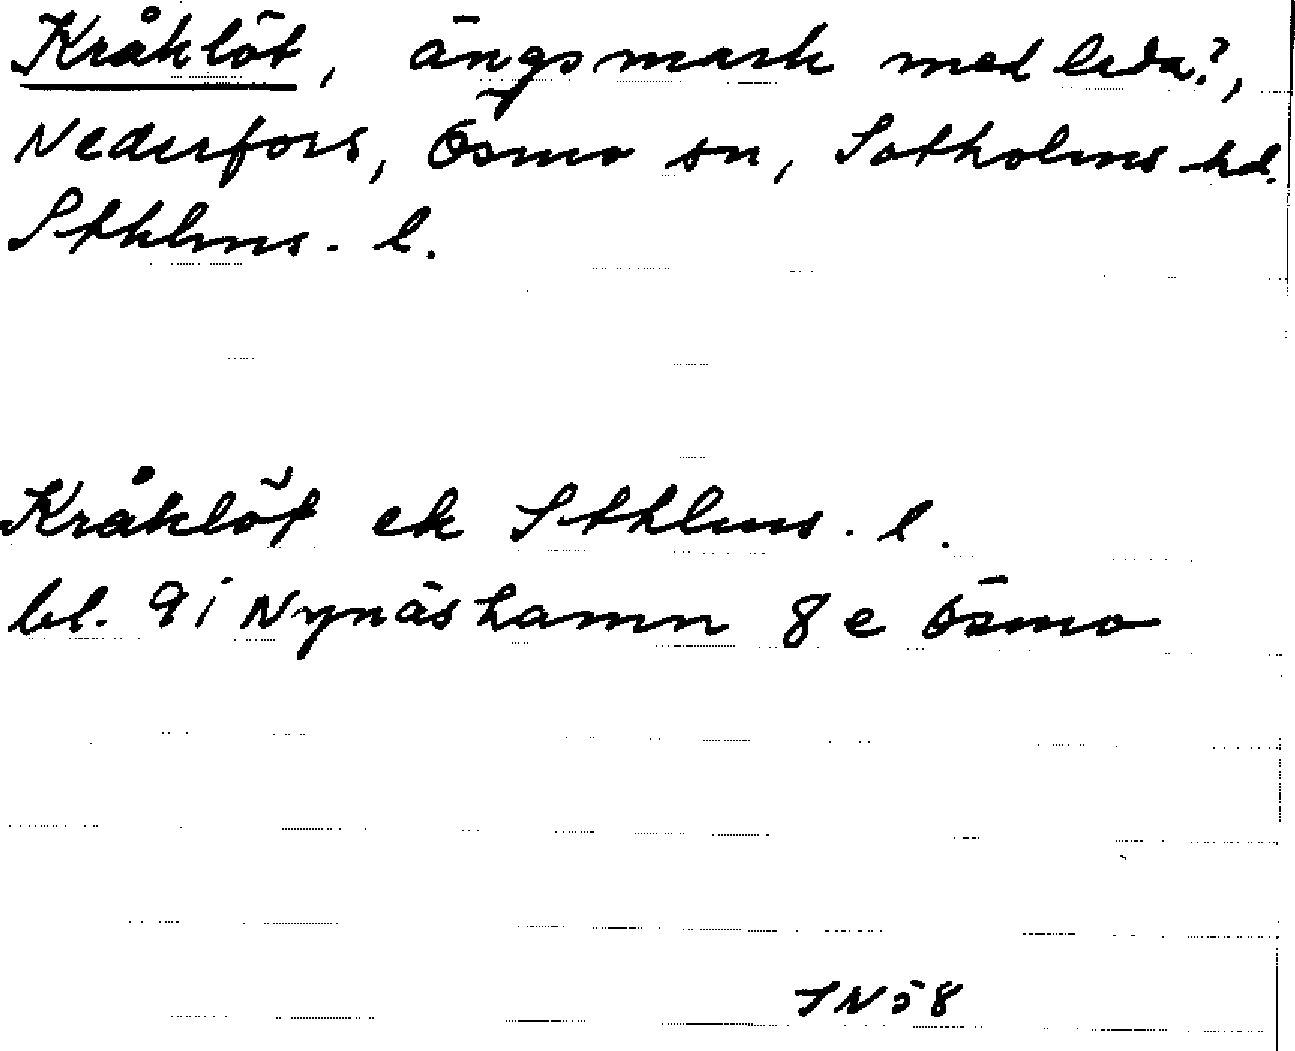 Kråklöt, ängsmark med lada?,
Nederfors, Ösmo sn, Sotholms hd.
Sthlms. l.
Kråklöt ek Sthlms. l.
bl. 9i Nynäshamn 8e Ösmo